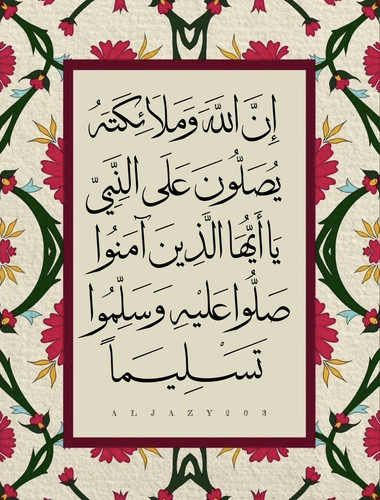 إِنَّ اللَّهَ وَمَلَائِكَتَهُ
يُصَلُّونَ عَلَى النَّبِيِّ
يَا أَيُّهَا الَّذِينَ آمَنُوا
صَلُّوا عَلَيْهِ وَسَلِّمُوا
تَسْلِيمَاً
ALJAZY203